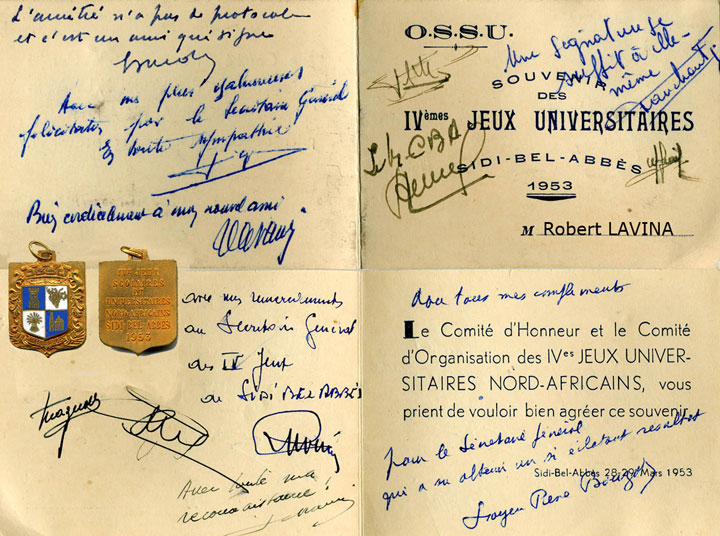 L'amitié n'a pas de protocole
et c'est un ami qui signe
Avec mes plus chaleureuses
félicitations pour le Secrétaire Général
En toute sympathie
Bien cordialement à mon nouvel ami
O.S.S.U.
Une signature se
suffit à elle-
même
SOUVENIR
DES
IVèmes JEUX UNIVERSITAIRES
SIDI-BEL-ABBÈS
1953
M Robert LAVINA
IVes JEUX
SCOLAIRES
ET
UNIVERSITAIRES
NORD-AFRICAINS
SIDI BEL ABBES
1953
avec mes remerciements
au Secrétaire Général
des IV Jeux
de SIDI BEL ABBÈS
Avec toute ma
reconnaissance !
avec tous mes compliments
Le Comité d'Honneur et le Comité
d'Organisation des IVes JEUX UNIVER-
SITAIRES NORD-AFRICAINS, vous
prient de vouloir bien agréer ce souvenir.
pour le Sécrétaire général
qui a su obtenir un si éclatant resultat
Sidi-Bel-Abbès 28-29 Mars 1953